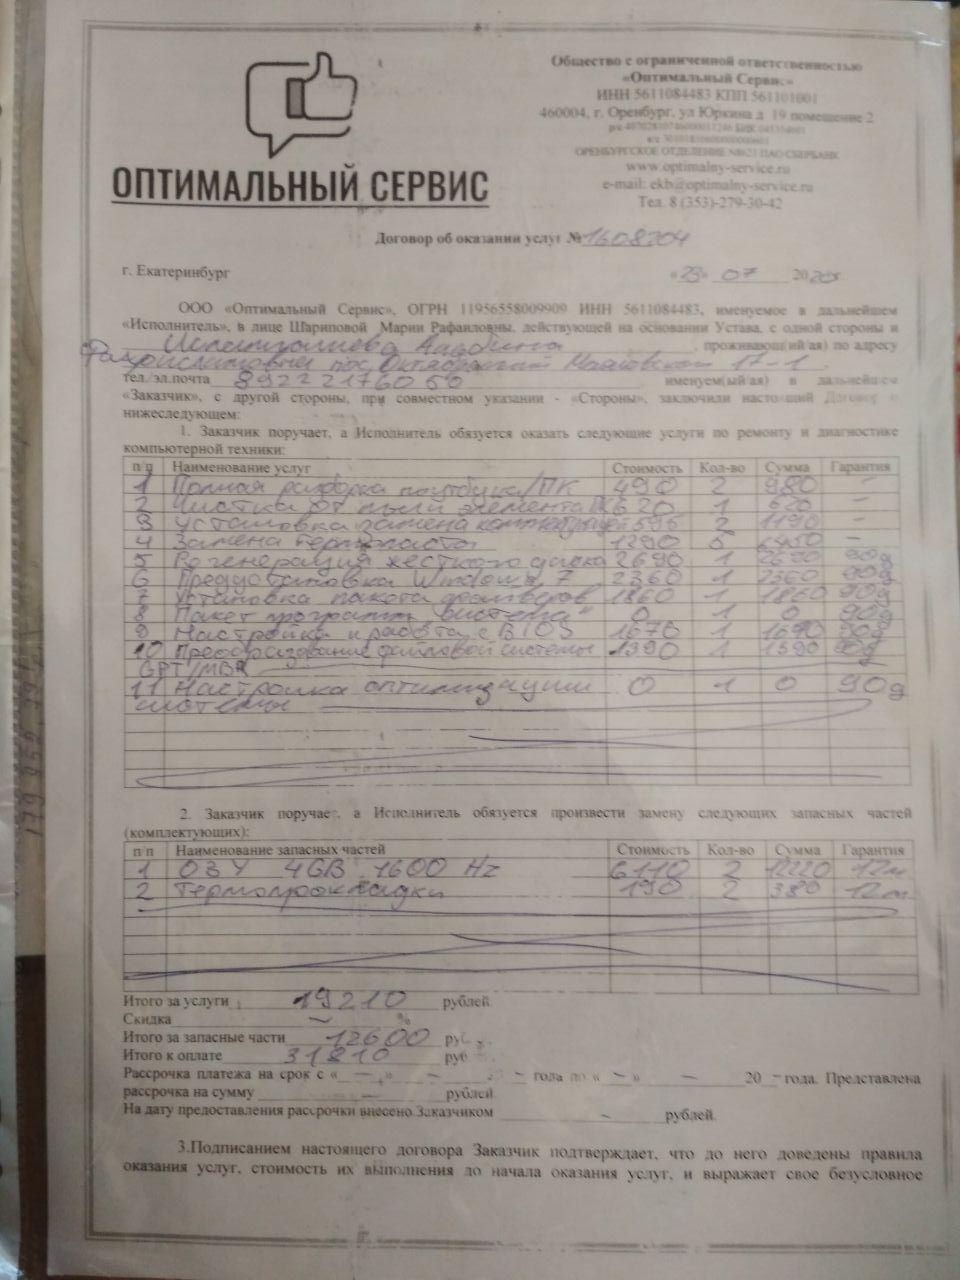 Общество с ограниченной ответственностью
«Оптимальный Сервис»
ИНН 5611084483 КПП 561101001
460004, г. Оренбург, ул Юркина д 19 помещение 2
ОРЕНБУРГСКОЕ ОТДЕЛЕНИЕ N8623 ПАО СБЕРБАНК
www.optimalny-service.ru
e-mail: ekb@optimalny-service.ru
Тел. 8 (353)-279-30-42
ОПТИМАЛЬНЫЙ СЕРВИС
Договор об оказании услуг № 1608204
г. Екатеринбург «23» 07 2020г
ООО «Оптимальный Сервис», ОГРН 11956558009909 ИНН 5611084483, именуемое в дальнейшем
«Исполнитель», в лице Шариповой Марии Рафаиловны, действующей на основании Устава, с одной стороны и
, проживающ(ий/ая) по адресу
пос. Октябрьский 17-1
тел./эл.почта 89222176050 именуем(ый/ая) в дальнейшем
«Заказчик», с другой стороны, при совместном указании - «Стороны», заключили настоящий Договор о
нижеследующем:
1. Заказчик поручает, а Исполнитель обязуется оказать следующие услуги по ремонту и диагностике
компьютерной техники:
п/п Наименование услуг Стоимость Кол-во Сумма Гарантия
1 Полная разборка ноутбука/ПК 490 2 980 –
2 Чистка от пыли элемента ПК 620 1 620 –
3 Установка/замена 595 2 1190 –
4 Замена термопасты 1290 5 6450 –
5 Регенерация жесткого диска 2690 1 2690 90д
6 Предустановка Windows 7 2360 1 2360 90д
7 Установка пакета драйверов 1860 1 1860 90д
8 Пакет программ "Система" 0 1 0 90д
9 Настройка и работа с BIOS 1670 1 1670 90д
10 Преобразование файловой системы 1390 1 1390 90д
GPT/MBR
11 Настройка оптимизации 0 1 0 90д
системы
2. Заказчик поручает, а Исполнитель обязуется произвести замену следующих запасных частей
(комплектующих):
п/п Наименование запасных частей Стоимость Кол-во Сумма Гарантия
1 ОЗУ 4GB 1600 Hz 6110 2 12220 12м
2 Термопрокладки 190 2 380 12м
Итого за услуги 19210 рублей
Скидка – %
Итого за запасные части 12600 руб
Итого к оплате 31810 руб
Рассрочка платежа на срок с « – » – – года по « – » – 20 – года. Представлена
рассрочка на сумму – рублей
На дату предоставления рассрочки внесено Заказчиком – рублей.
3.Подписанием настоящего договора Заказчик подтверждает, что до него доведены правила
оказания услуг, стоимость их выполнения до начала оказания услуг, и выражает свое безусловное